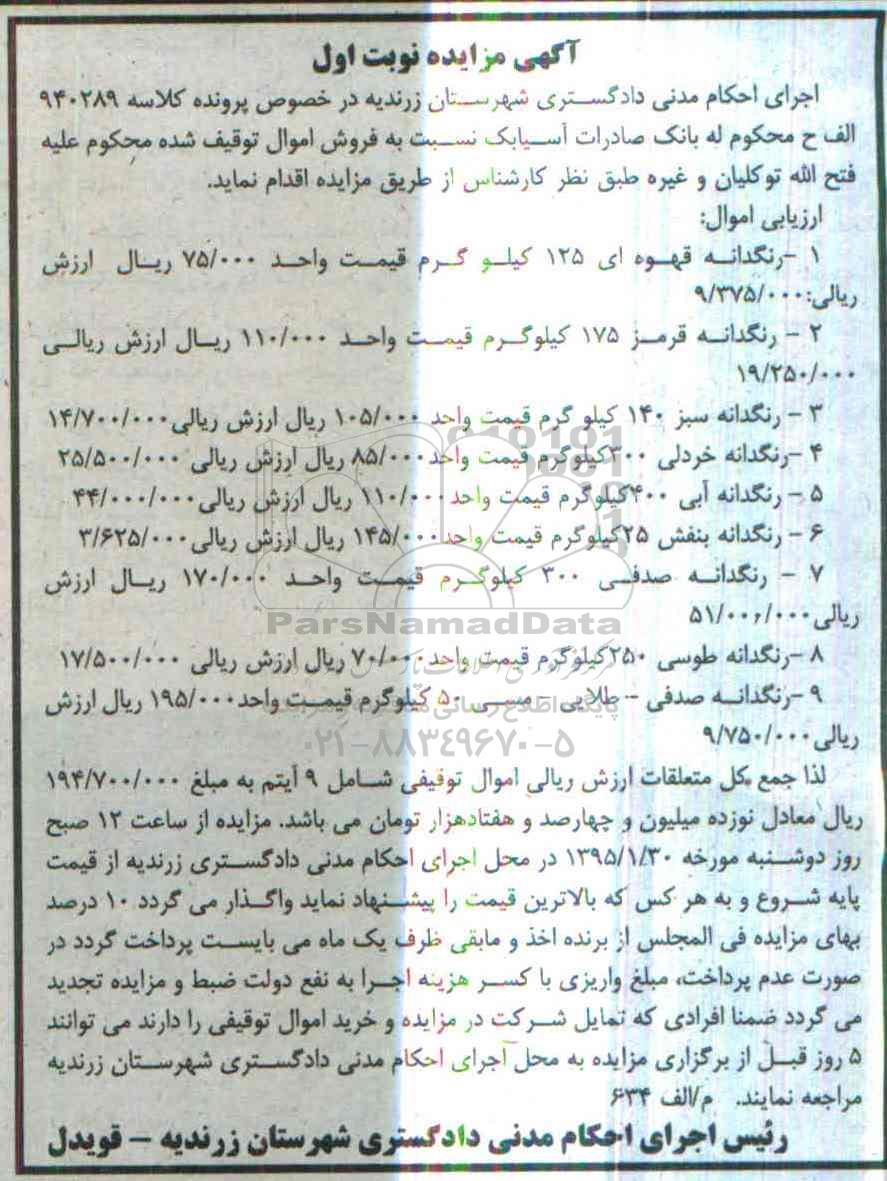 آگهی مزایده نوبت اول
اجرای احکام مدنی دادگستری شهرستان زرندیه در خصوص پرونده کلاسه ۹۴۰۲۸۹
الف ح محکوم له بانک صادرات آسیابک نسبت به فروش اموال توقیف شده محکوم علیه
فتح الله توکلیان و غیره طبق نظر کارشناس از طریق مزایده اقدام نماید.
ارزیابی اموال:
۱ -رنگدانه قهوه ای ۱۲۵ کیلو گرم قیمت واحد ۷۵/۰۰۰ ریال ارزش
ریالی:۹/۳۷۵/۰۰۰
۲ - رنگدانه قرمز ۱۷۵ کیلوگرم قیمت واحد ۱۱۰/۰۰۰ ریال ارزش ریالی
۱۹/۲۵۰/۰۰۰
۳ - رنگدانه سبز ۱۴۰ کیلو گرم قیمت واحد ۱۰۵/۰۰۰ ریال ارزش ریالی۱۴/۷۰۰/۰۰۰
۴ -رنگدانه خردلی ۳۰۰کیلوگرم قیمت واحد۸۵/۰۰۰ ریال ارزش ریالی ۲۵/۵۰۰/۰۰۰
۵ - رنگدانه آبی ۴۰۰کیلوگرم قیمت واحد ۱۱۰/۰۰۰ ریال ارزش ریالی۴۴/۰۰۰/۰۰۰
۶ - رنگدانه بنفش ۲۵کیلوگرم قیمت واحد۱۴۵/۰۰۰ ریال ارزش ریالی۳/۶۲۵/۰۰۰
۷ - رنگدانه صدفی ۳۰۰ کیلوگرم قیمت واحد ۱۷۰/۰۰۰ ریال ارزش
ریالی۵۱/۰۰۰/۰۰۰
ParsNamadData
۸ -رنگدانه طوسی ۲۵۰کیلوگرم قیمت واحد۷۰/۰۰۰ ریال ارزش ریالی ۱۷/۵۰۰/۰۰۰
۹ -رنگدانه صدفی - طلایی - مسی ۵۰ کیلوگرم قیمت واحد۱۹۵/۰۰۰ ریال ارزش
ریالی۹/۷۵۰/۰۰۰
۰۲۱-۸۸۳۴۹۶۷۰-۵
لذا جمع کل متعلقات ارزش ریالی اموال توقیفی شامل ۹ آیتم به مبلغ ۱۹۴/۷۰۰/۰۰۰
ریال معادل نوزده میلیون و چهارصد و هفتادهزار تومان می باشد. مزایده از ساعت ۱۲ صبح
روز دوشنبه مورخه ۱۳۹۵/۱/۳۰ در محل اجرای احکام مدنی دادگستری زرندیه از قیمت
پایه شروع و به هر کس که بالاترین قیمت را پیشنهاد نماید واگذار می گردد ۱۰ درصد
بهای مزایده فی المجلس از برنده اخذ و مابقی ظرف یک ماه می بایست پرداخت گردد در
صورت عدم پرداخت، مبلغ واریزی با کسر هزینه اجرا به نفع دولت ضبط و مزایده تجدید
می گردد ضمنا افرادی که تمایل شرکت در مزایده و خرید اموال توقیفی را دارند می توانند
۵ روز قبل از برگزاری مزایده به محل اجرای احکام مدنی دادگستری شهرستان زرندیه
مراجعه نمایند. م/الف ۶۳۴
رئیس اجرای احکام مدنی دادگستری شهرستان زرندیه - قویدل